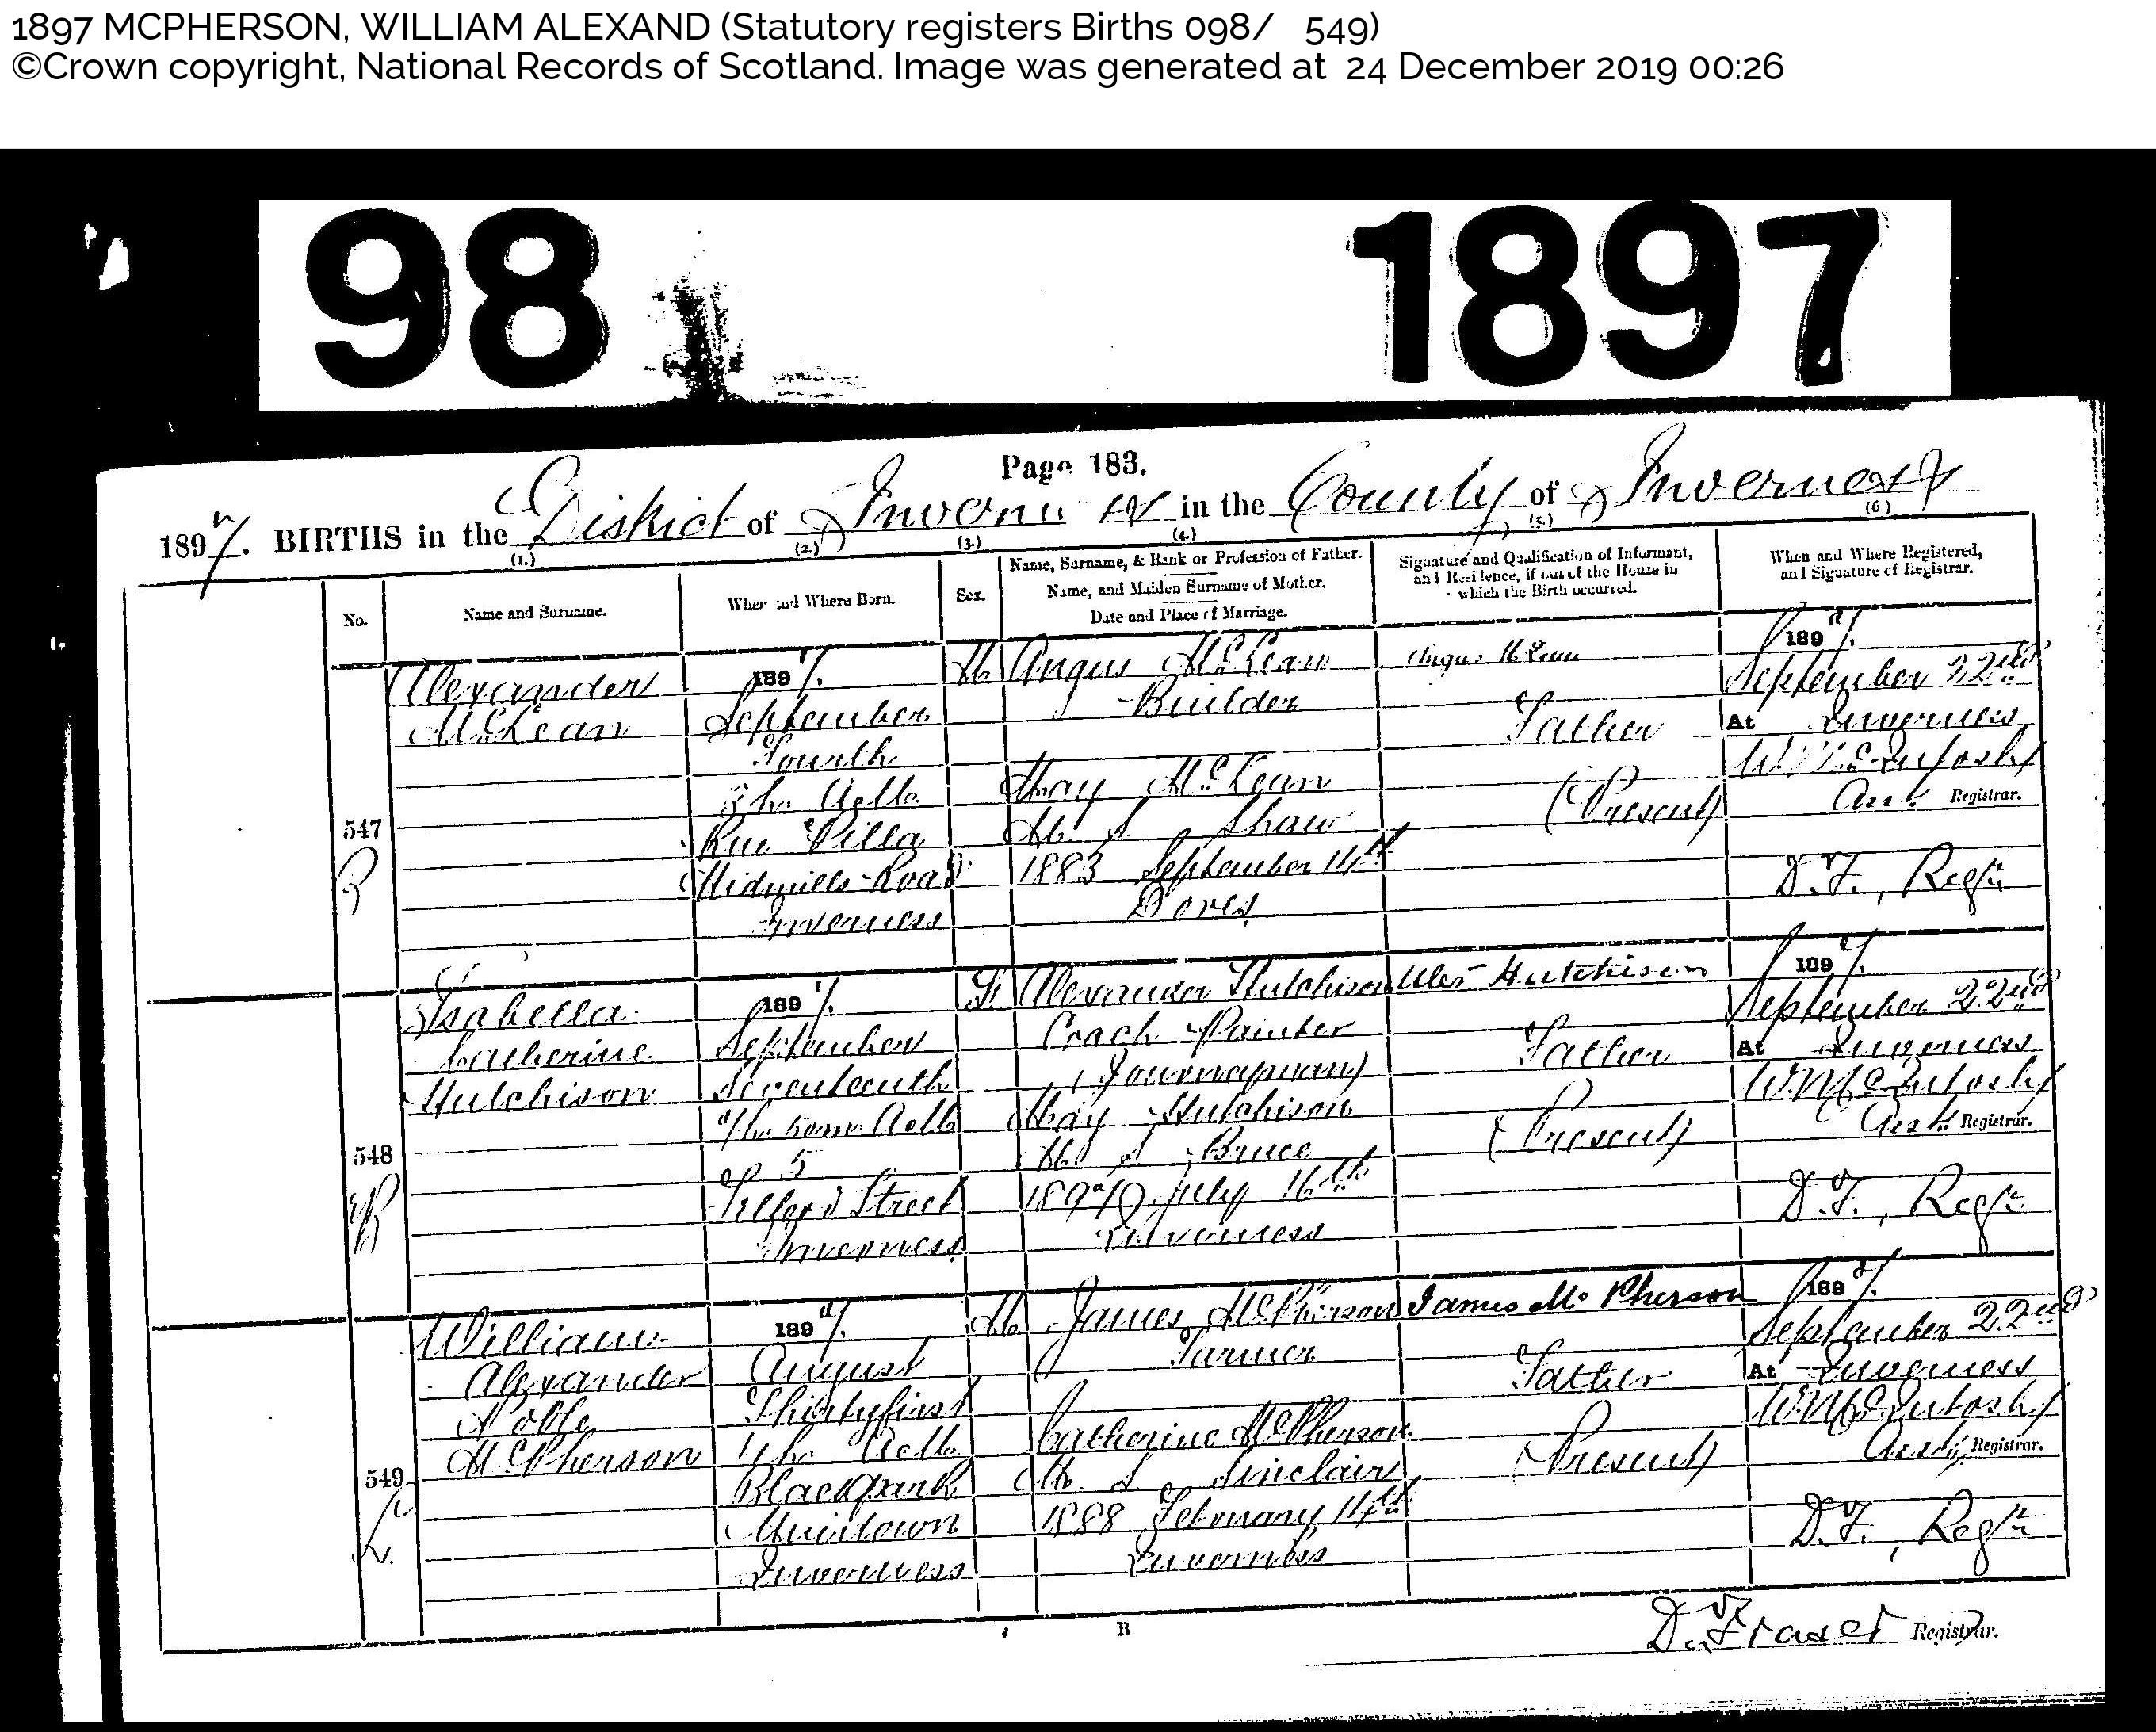 1897 MCPHERSON, WILLIAM ALEXAND (Statutory registers Births 098/ 549)
©Crown copyright, National Records of Scotland. Image was generated at 24 December 2019 00:26
98 1897
Page 183.
1897. BIRTHS in the District of Inverness in the County of Inverness
(1.) (2.) (3.) (4.) (5.) (6)
No.
Name and Surname.
When and Where Born.
Sex.
Name, Surname, & Rank or Profession of Father.
Name, and Maiden Surname of Mother.
Date and Place of Marriage.
Signature and Qualification of Informant,
and Residence, if out of the House in
which the Birth occurred.
When and Where Registered,
and Signature of Registrar.
547
Alexander
McLean
1897.
September
Fourth
3h. AM
Rue Villa
Midmills Road
Inverness
M
Angus McLean
Builder
May McLean
M. S. Shaw
1883 September 14th
Dores
Angus McLean
Father
(Present)
1897.
September 22nd
At Inverness
W. McIntosh
Asst. Registrar.
D.F., Regr.
548
Isabella
Catherine
Hutchison
1897.
September
Seventeenth
AM
5
Telford Street
Inverness
F.
Alexander Hutchison
Coach Painter
(Journeyman)
May Hutchison
M. S. Bruce
July 16th
Inverness
Alex Hutchison
Father
(Present)
1897.
September 22nd
At Inverness
W. McIntosh
Asst. Registrar.
D.F., Regr.
549
William
Alexander
Noble
McPherson
1897.
August
Thirtyfirst
AM
Blackpark
Muirtown
Inverness
M
James McPherson
Farmer
Catherine McPherson
M. S. Sinclair
1888 February 14th
Inverness
James McPherson
Father
(Present)
1897.
September 22nd
At Inverness
W. McIntosh
Asst. Registrar.
D.F., Regr.
B
D. Fraser Registrar.